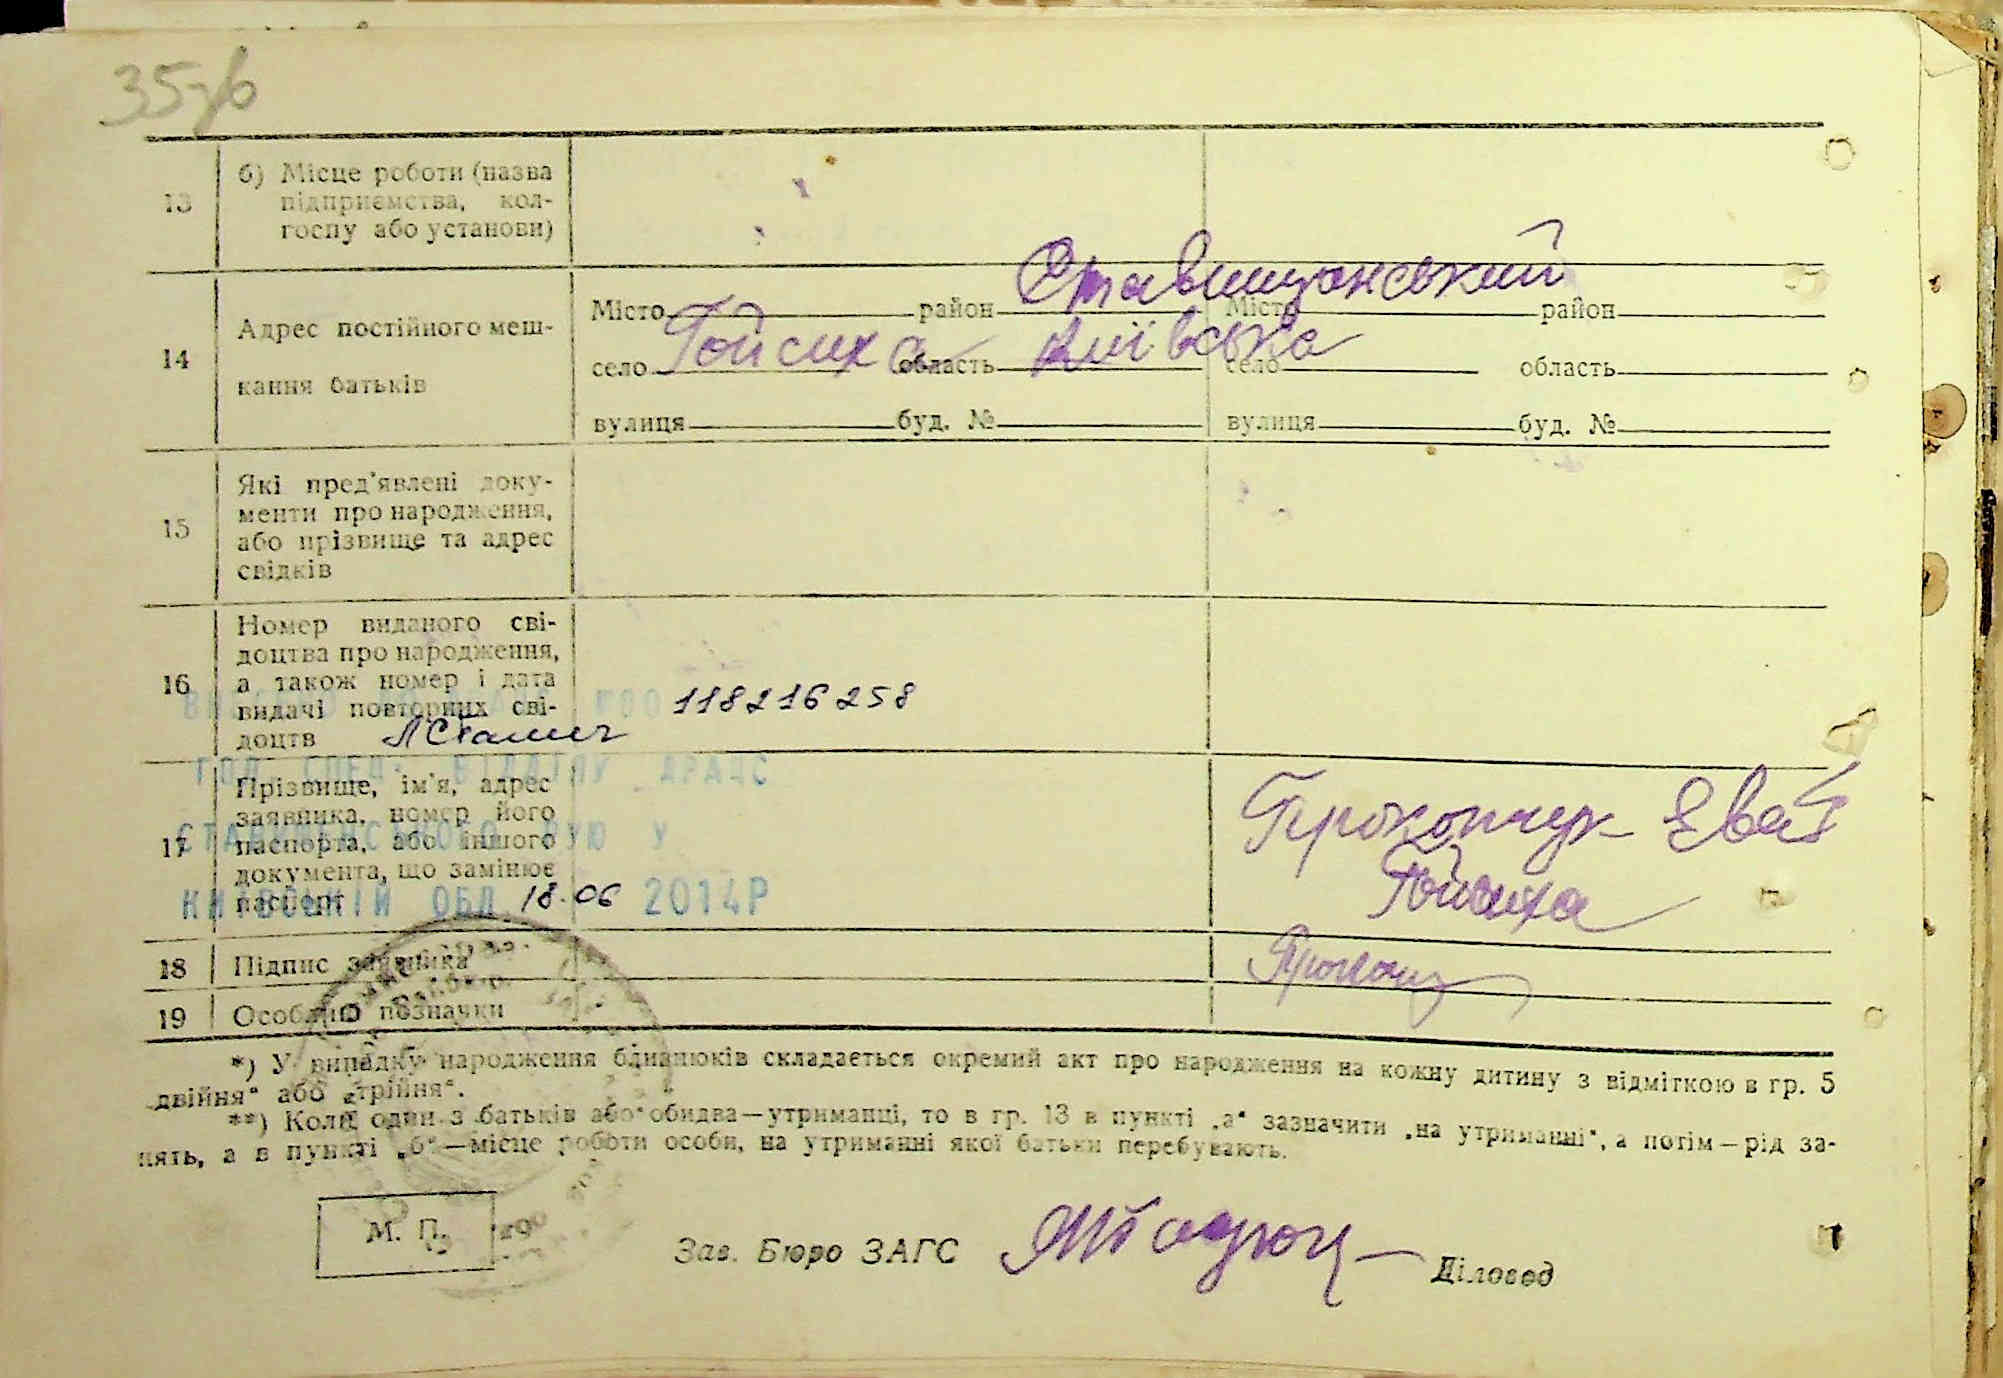 35зв
13
б) Місце роботи (назва
підприємства, кол-
госпу або установи)
14
Адрес постійного меш-
кання батьків
Місто район Ставищанський
село Гойсиха область Київська
вулиця буд. №
Місто район
село область
вулиця буд. №
15
Які пред'явлені доку-
менти про народження,
або прізвище та адрес
свідків
16
Номер виданого сві-
доцтва про народження,
а також номер і дата
видачі повторних сві-
доцтв
118216258
ГОЛ. СПЕЦ. ВІДДІЛУ ДРАЦС
СТАВИЩЕНСЬКОГО РУЮ У
КИЇВСЬКІЙ ОБЛ 18.06 2014Р
17
Прізвище, ім'я, адрес
заявника, номер його
паспорта, або іншого
документа, що замінює
паспорт
Прокопчук Ева
Гойсиха
18
Підпис заявника
19
Особливі позначки
*) У випадку народження близнюків складається окремий акт про народження на кожну дитину з відміткою в гр. 5
„двійня“ або „трійня“.
**) Коли один з батьків або обидва—утриманці, то в гр. 13 в пункті „а“ зазначити „на утриманні“, а потім—рід за-
нять, а в пункті „б“—місце роботи особи, на утриманні якої батьки перебувають.
М. П.
Зав. Бюро ЗАГС
Діловод